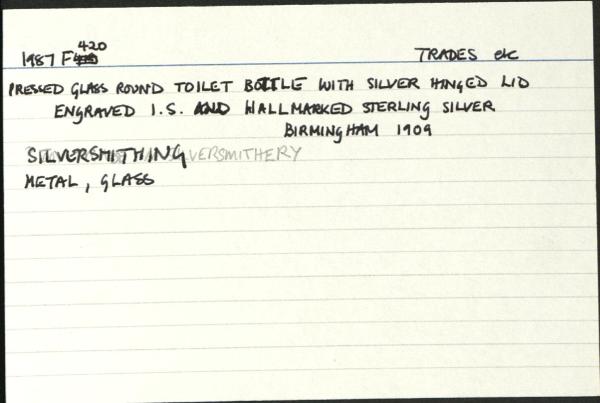 1987 F420 TRADES etc
PRESSED GLASS ROUND TOILET BOTTLE WITH SILVER HINGED LID
ENGRAVED I.S. AND HALLMARKED STERLING SILVER
BIRMINGHAM 1909
SILVERSMITHING
METAL, GLASS